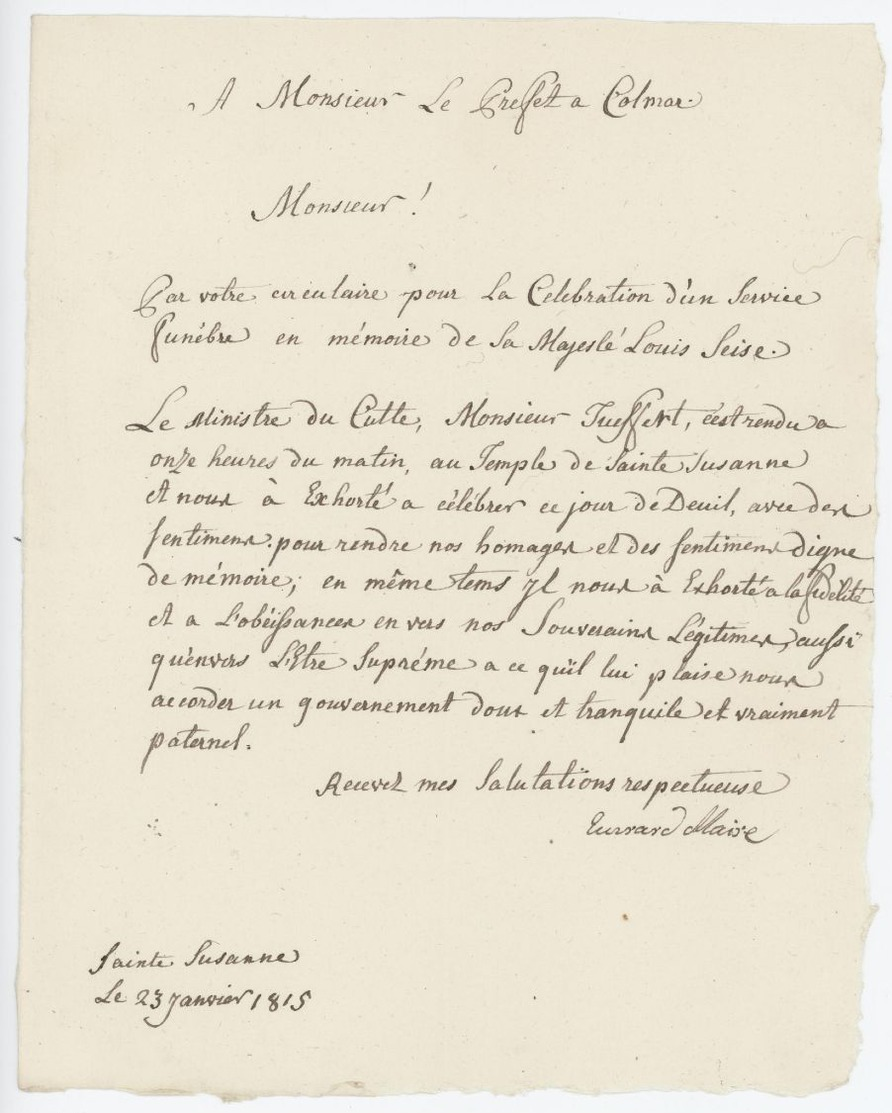 A Monsieur Le Preffét a Colmar.
Monsieur !
Par votre circulaire pour La Celebration d'un Service
funébre en mémoire de Sa Majesté Louis Seise.
Le Ministre du Culte, Monsieur Tueffert, c'est rendu a
onze heures du matin, au Temple de Sainte Susanne
et nous à Exhorté a célébrer ce jour de Deuil, avec des
sentimens. pour rendre nos homages et des sentimens digne
de mémoire; en même tems yl nous à Exhorté a la fidélité
et a L'obéissances en vers nos Souverains Légitimes, aussi
qu'envers L'Etre Supréme a ce qu'il lui plaise nous
accorder un gouvernement doux et tranquile et vraiment
paternel.
Recevez mes Salutations respectueuse
Maire
Sainte Susanne
Le 23 Janvier 1815